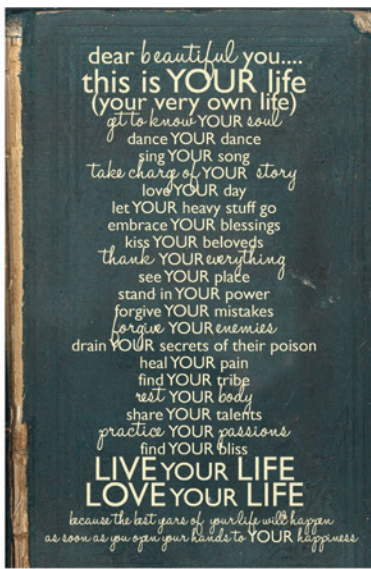 dear beautiful you....
this is YOUR life
(your very own life)
get to know YOUR soul
dance YOUR dance
sing YOUR song
take charg of YOUR story
love YOUR day
let YOUR heavy stuff go
embrace YOUR blessings
kiss YOUR beloveds
thank YOUR everything
see YOUR place
stand in YOUR power
forgive YOUR mistakes
forgive YOUR enemies
drain YOUR secrets of their poison
heal YOUR pain
find YOUR tribe
rest YOUR body
share YOUR talents
practice YOUR passions
find YOUR bliss
LIVE YOUR LIFE
LOVE YOUR LIFE
because the best years of your life will happen
as soon as you open your hands to YOUR happiness